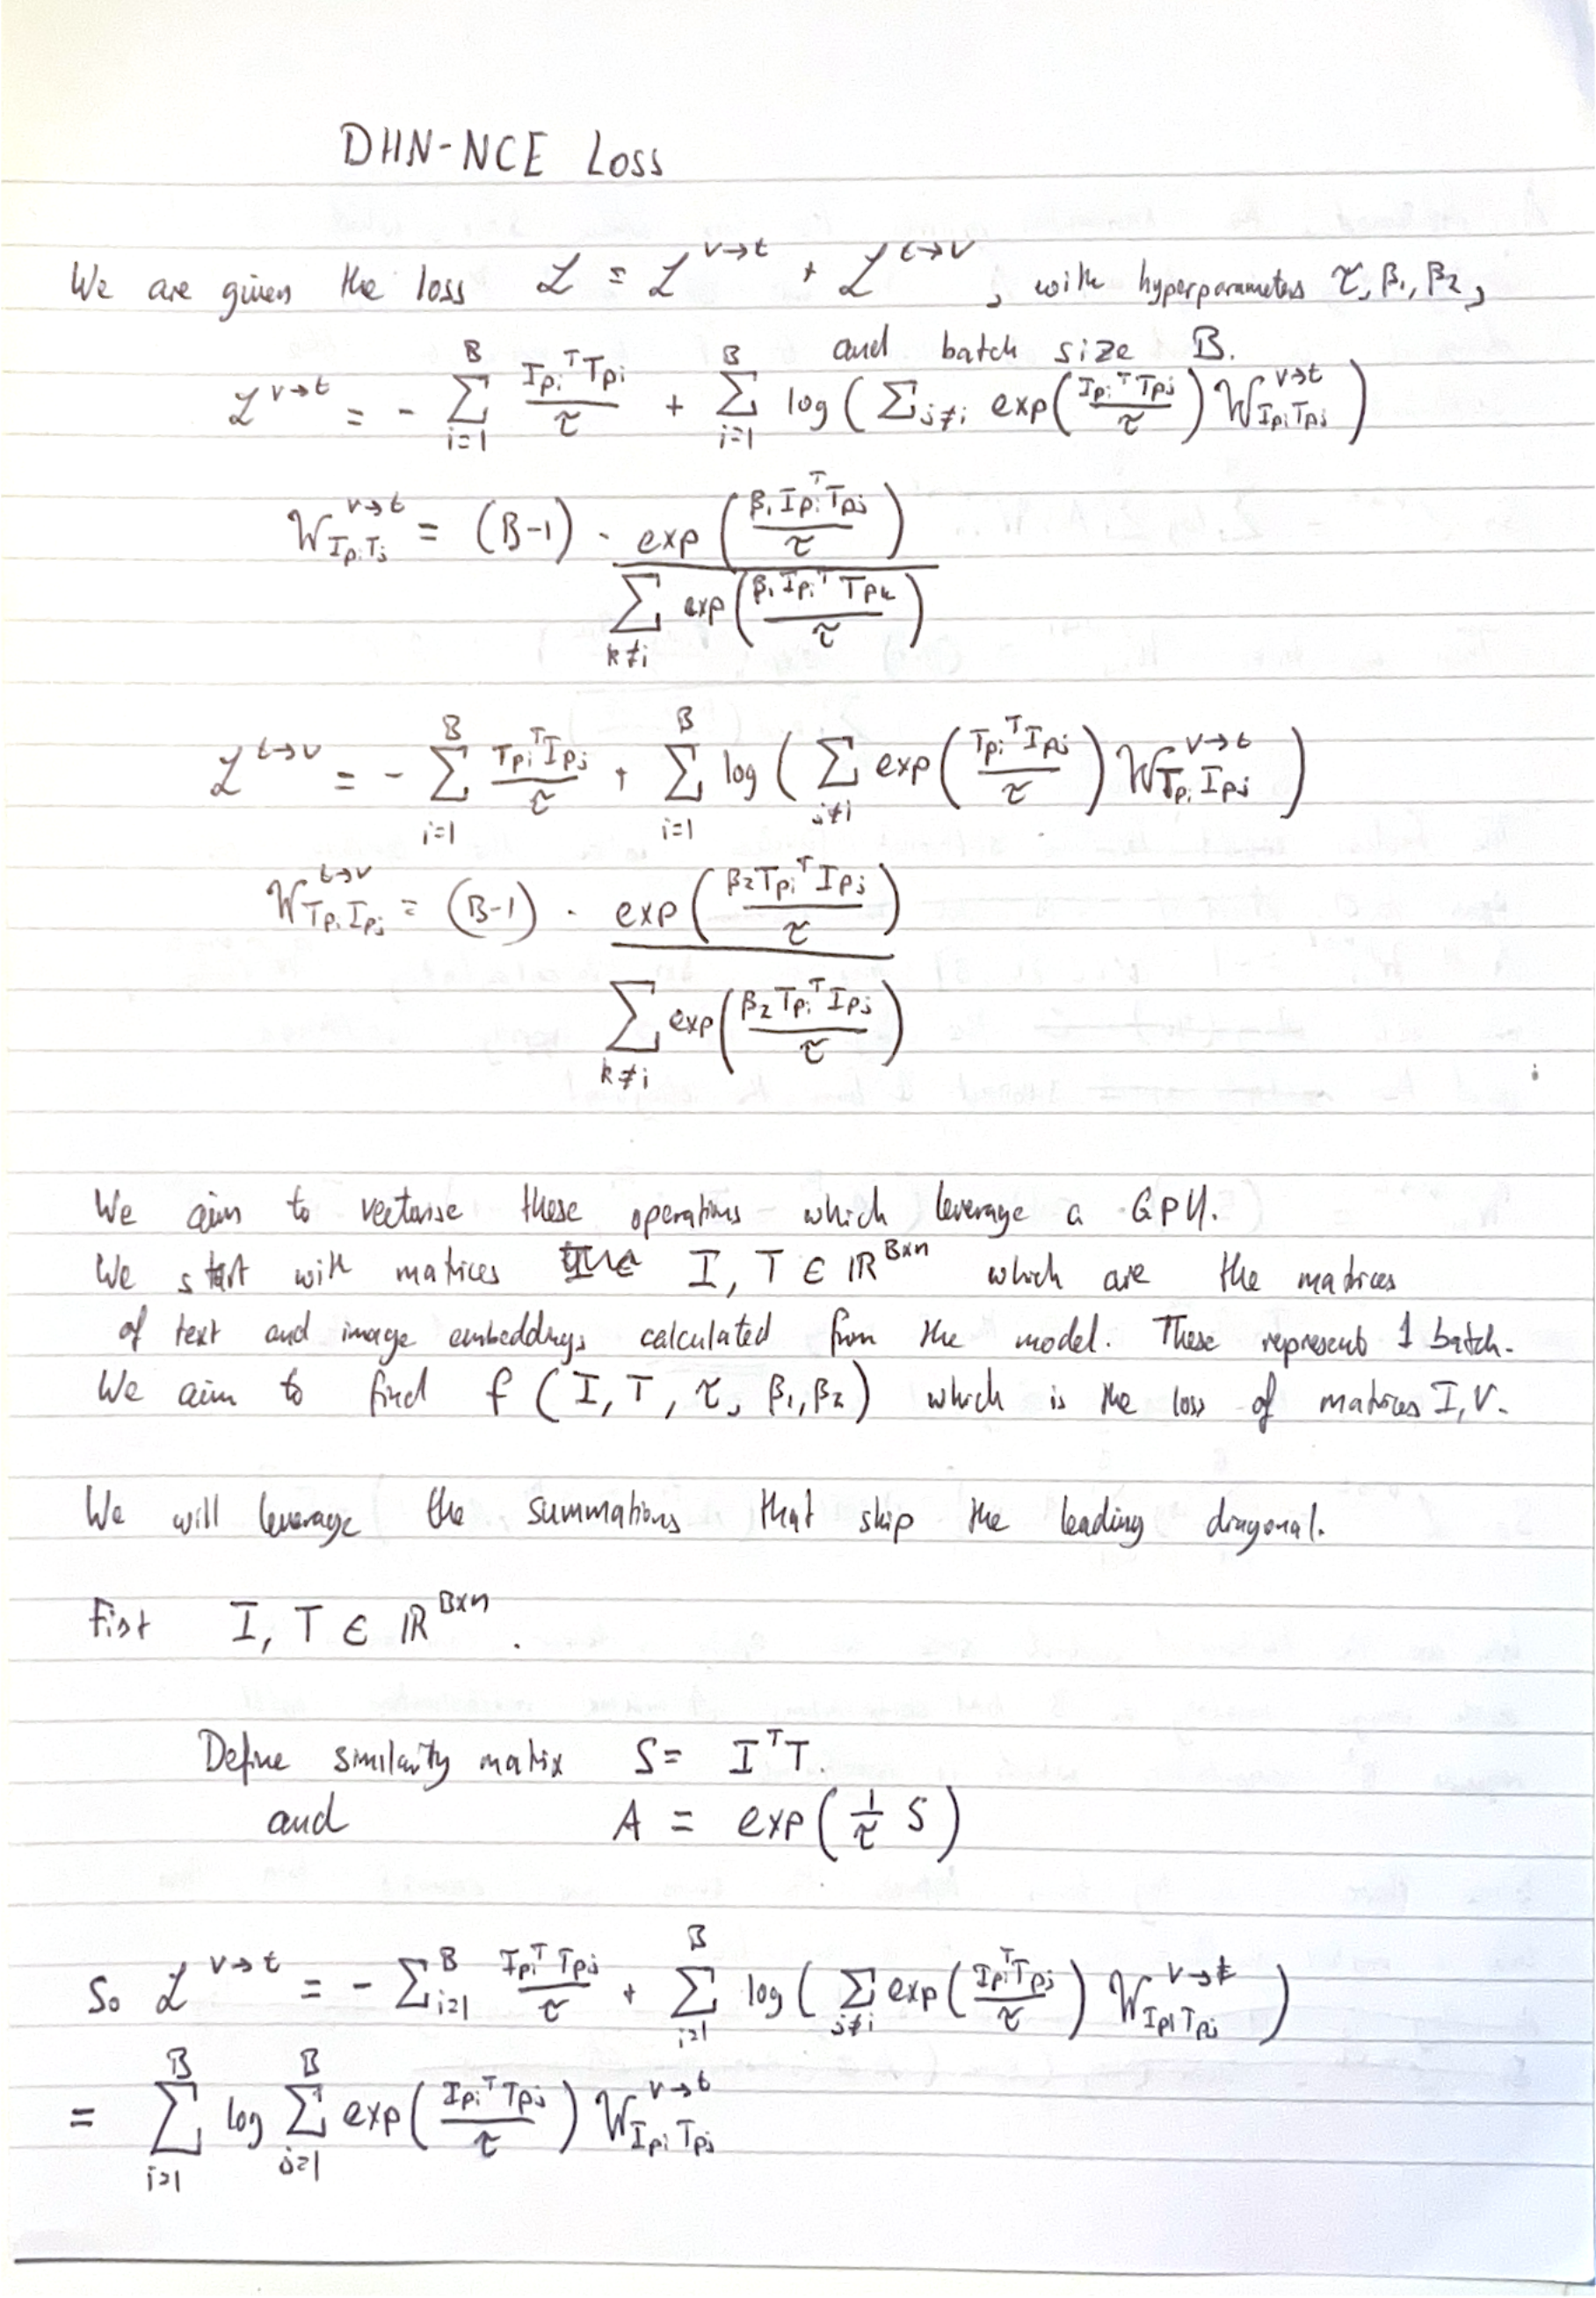 DHN-NCE Loss
We are given the loss ℒ = ℒ^{v→t} + ℒ^{t→v}, with hyperparameters τ, β₁, β₂,
and batch size B.
ℒ^{v→t} = - Σ_{i=1}^{B} (I_{pi}^T T_{pi})/τ + Σ_{i=1}^{B} log ( Σ_{j≠i} exp( (I_{pi}^T T_{pj})/τ ) W^{v→t}_{I_{pi} T_{pj}} )
W^{v→t}_{I_{pi} T_j} = (B-1) · exp( (β₁ I_{pi}^T T_{pj})/τ ) / Σ_{k≠i} exp( (β₁ I_{pi}^T T_{pk})/τ )
ℒ^{t→v} = - Σ_{i=1}^{B} (T_{pi}^T I_{pj})/τ + Σ_{i=1}^{B} log ( Σ_{j≠i} exp( (T_{pi}^T I_{pj})/τ ) W^{v→t}_{T_{pi} I_{pj}} )
W^{t→v}_{T_{pi} I_{pj}} = (B-1) · exp( (β₂ T_{pi}^T I_{pj})/τ ) / Σ_{k≠i} exp( (β₂ T_{pi}^T I_{pj})/τ )
We aim to vectorise these operations which leverage a GPU.
We start with matrices I, T ∈ ℝ^{B×n} which are the matrices
of text and image embeddings calculated from the model. These represent 1 batch.
We aim to find f ( I, T, τ, β₁, β₂ ) which is the loss of matrices I, V.
We will leverage the summations that skip the leading diagonal.
First I, T ∈ ℝ^{B×n}.
Define similarity matrix S = I^T T.
and A = exp( 1/τ S )
So ℒ^{v→t} = - Σ_{i=1}^{B} (I_{pi}^T T_{pj})/τ + Σ_{i=1}^{B} log ( Σ_{j≠i} exp( (I_{pi}^T T_{pj})/τ ) W^{v→t}_{I_{pi} T_{pj}} )
= Σ_{i=1}^{B} log Σ_{j=1}^{B} exp( (I_{pi}^T T_{pj})/τ ) W^{v→t}_{I_{pi} T_{pj}}